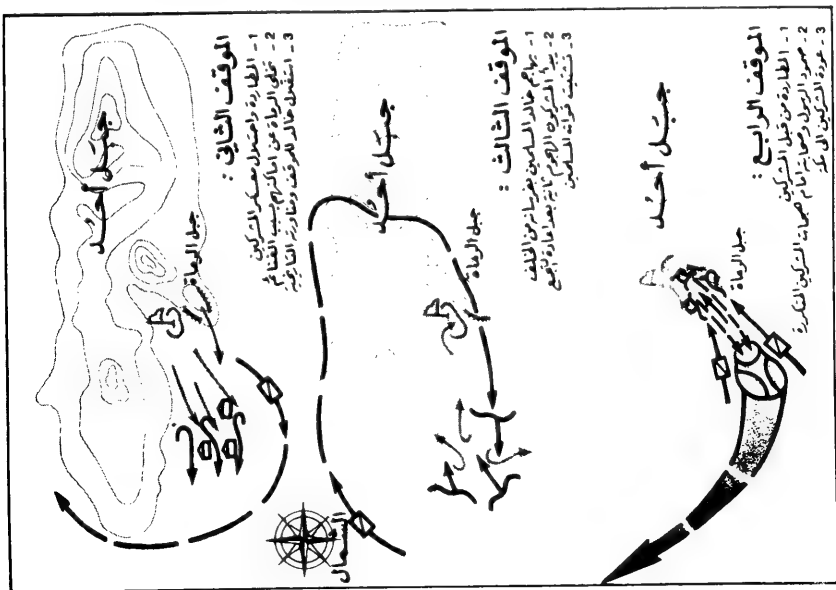 الموقف الثاني :
1 - المطاردة واحتلال معسكر المشركين
2 - تخلي الرماة عن اماكنهم بسبب الغنائم
3 - استغلال خالد للموقف ومناورته الناجحة
جبل أحُد
جبل الرماة
الموقف الثالث :
1 - يهاجم خالد المسلمين بفرسانه من الخلف
2 - يبدأ المشركون الهجوم ثانية بعد اعادة تجمع
3 - تشتيت قوات المسلمين
جبل أحُد
جبل الرماة
الشمال
الموقف الرابع :
1 - المطاردة من قبل المشركين
2 - صمود الرسول وصحابته امام هجمات المشركين المتكررة
3 - عودة المشركين الى مكة
جبل أحُد
جبل الرماة